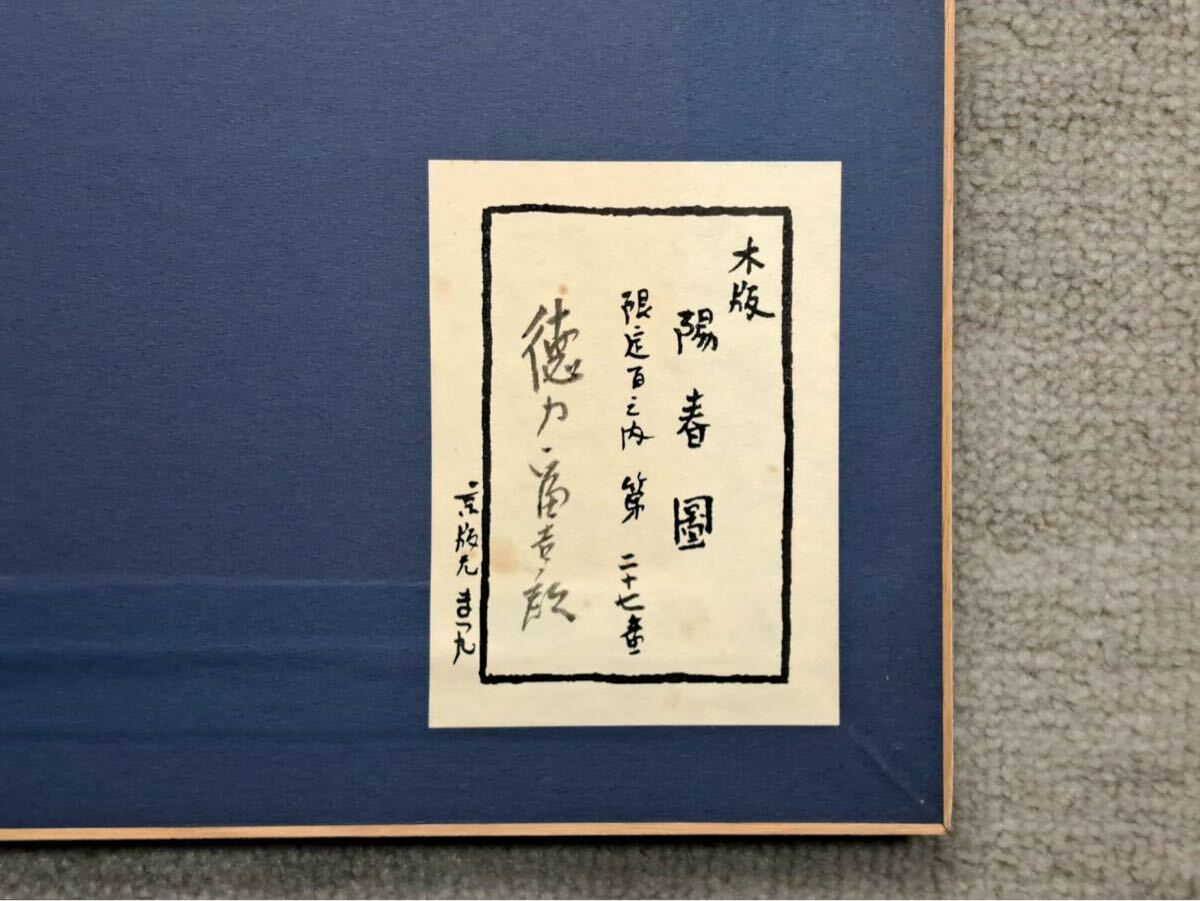 木版
陽春圖
限定百之内 第二十七番
徳力富吉郎
京版元 まつ九